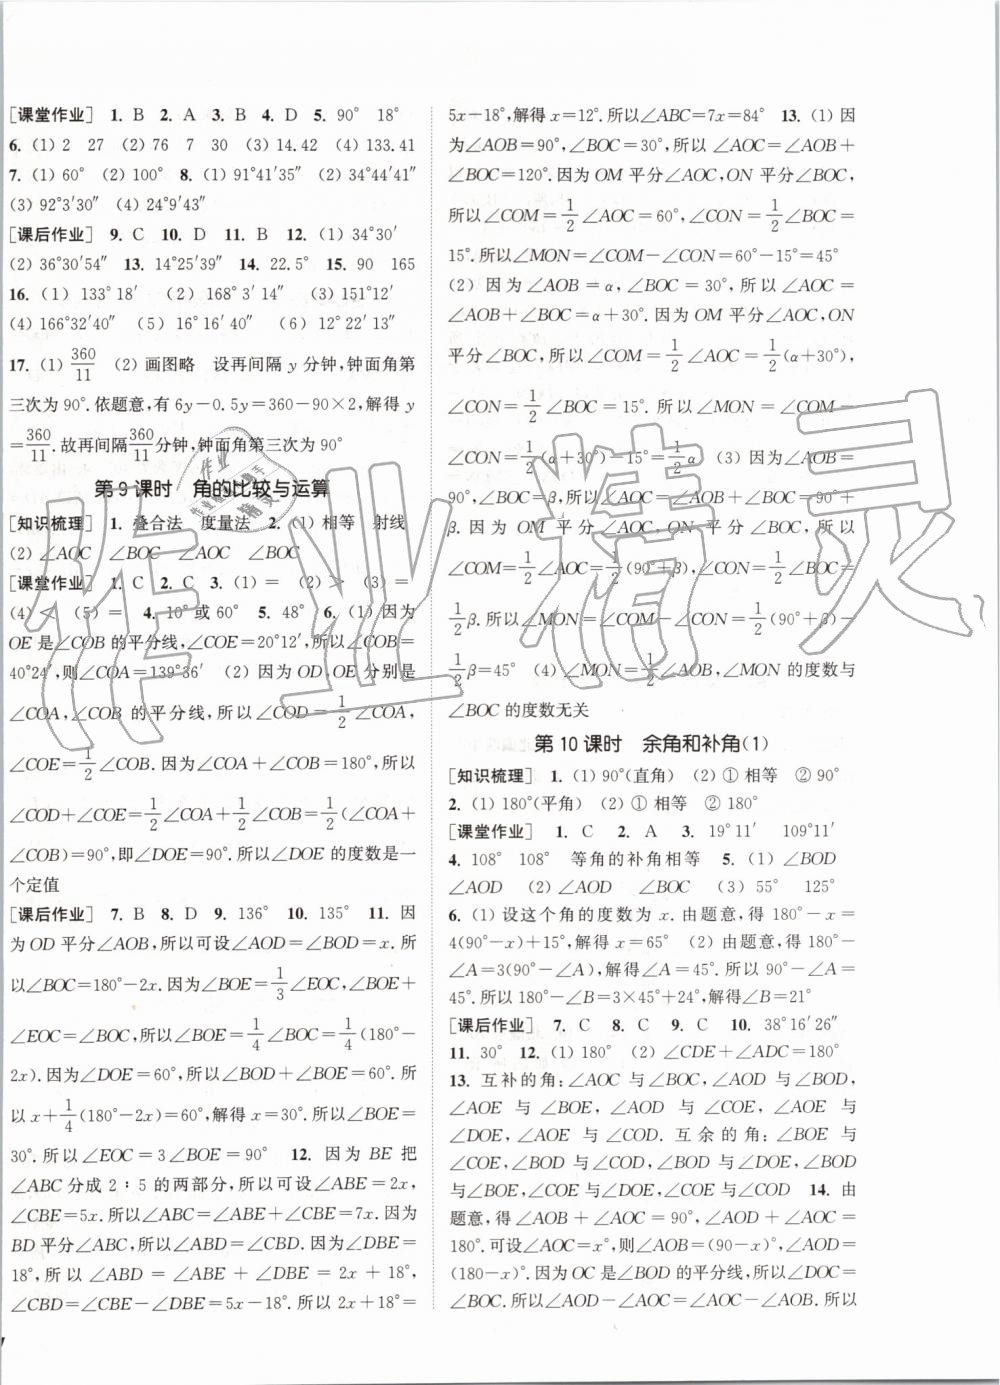 [课堂作业] 1. B 2. A 3. B 4. D 5. 90° 18°
6. (1) 2 27 (2) 76 7 30 (3) 14.42 (4) 133.41
7. (1) 60° (2) 100° 8. (1) 91°41′35″ (2) 34°44′41″
(3) 92°3′30″ (4) 24°9′43″
[课后作业] 9. C 10. D 11. B 12. (1) 34°30′
(2) 36°30′54″ 13. 14°25′39″ 14. 22.5° 15. 90 165
16. (1) 133°18′ (2) 168°3′14″ (3) 151°12′
(4) 166°32′40″ (5) 16°16′40″ (6) 12°22′13″
17. (1) 360/11 (2) 画图略 设再间隔 y 分钟,钟面角第
三次为 90°.依题意,有 6y－0.5y＝360－90×2,解得 y
＝360/11.故再间隔360/11分钟,钟面角第三次为 90°
第 9 课时 角的比较与运算
[知识梳理] 1. 叠合法 度量法 2. (1) 相等 射线
(2) ∠AOC ∠BOC ∠AOC ∠BOC
[课堂作业] 1. C 2. C 3. (1) ＝ (2) ＞ (3) ＝
(4) ＜ (5) ＝ 4. 10° 或 60° 5. 48° 6. (1) 因为
OE 是∠COB 的平分线,∠COE＝20°12′,所以∠COB＝
40°24′,则∠COA＝139°36′ (2) 因为 OD,OE 分别是
∠COA,∠COB 的平分线,所以∠COD＝1/2∠COA,
∠COE＝1/2∠COB.因为∠COA＋∠COB＝180°,所以
∠COD＋∠COE＝1/2∠COA＋1/2∠COB＝1/2(∠COA＋
∠COB)＝90°,即∠DOE＝90°.所以∠DOE 的度数是一
个定值
[课后作业] 7. B 8. D 9. 136° 10. 135° 11. 因
为 OD 平分∠AOB,所以可设∠AOD＝∠BOD＝x.所
以∠BOC＝180°－2x.因为∠BOE＝1/3∠EOC,∠BOE＋
∠EOC＝∠BOC,所以∠BOE＝1/4∠BOC＝1/4(180°－
2x).因为∠DOE＝60°,所以∠BOD＋∠BOE＝60°.所
以 x＋1/4(180°－2x)＝60°,解得 x＝30°.所以∠BOE＝
30°.所以∠EOC＝3∠BOE＝90° 12. 因为 BE 把
∠ABC 分成 2∶5 的两部分,所以可设∠ABE＝2x,
∠CBE＝5x.所以∠ABC＝∠ABE＋∠CBE＝7x.因为
BD 平分∠ABC,所以∠ABD＝∠CBD.因为∠DBE＝
18°,所以∠ABD＝∠ABE＋∠DBE＝2x＋18°,
∠CBD＝∠CBE－∠DBE＝5x－18°.所以 2x＋18°＝
5x－18°,解得 x＝12°.所以∠ABC＝7x＝84° 13. (1) 因
为∠AOB＝90°,∠BOC＝30°,所以∠AOC＝∠AOB＋
∠BOC＝120°.因为 OM 平分∠AOC,ON 平分∠BOC,
所以∠COM＝1/2∠AOC＝60°,∠CON＝1/2∠BOC＝
15°.所以∠MON＝∠COM－∠CON＝60°－15°＝45°
(2) 因为∠AOB＝α,∠BOC＝30°,所以∠AOC＝
∠AOB＋∠BOC＝α＋30°.因为 OM 平分∠AOC,ON
平分∠BOC,所以∠COM＝1/2∠AOC＝1/2(α＋30°),
∠CON＝1/2∠BOC＝15°.所以∠MON＝∠COM－
∠CON＝1/2(α＋30°)－15°＝1/2α (3) 因为∠AOB＝
90°,∠BOC＝β,所以∠AOC＝∠AOB＋∠BOC＝90°＋
β.因为 OM 平分∠AOC,ON 平分∠BOC,所以
∠COM＝1/2∠AOC＝1/2(90°＋β),∠CON＝1/2∠BOC＝
1/2β.所以∠MON＝∠COM－∠CON＝1/2(90°＋β)－
1/2β＝45° (4) ∠MON＝1/2∠AOB,∠MON 的度数与
∠BOC 的度数无关
第 10 课时 余角和补角(1)
[知识梳理] 1. (1) 90°(直角) (2) ① 相等 ② 90°
2. (1) 180°(平角) (2) ① 相等 ② 180°
[课堂作业] 1. C 2. A 3. 19°11′ 109°11′
4. 108° 108° 等角的补角相等 5. (1) ∠BOD
∠AOD (2) ∠AOD ∠BOC (3) 55° 125°
6. (1) 设这个角的度数为 x.由题意,得 180°－x＝
4(90°－x)＋15°,解得 x＝65° (2) 由题意,得 180°－
∠A＝3(90°－∠A),解得∠A＝45°.所以 90°－∠A＝
45°.所以 180°－∠B＝3×45°＋24°,解得∠B＝21°
[课后作业] 7. C 8. C 9. C 10. 38°16′26″
11. 30° 12. (1) 180° (2) ∠CDE＋∠ADC＝180°
13. 互补的角:∠AOC 与∠BOC,∠AOD 与∠BOD,
∠AOE 与∠BOE,∠AOD 与∠COE,∠AOE 与
∠DOE,∠AOE 与∠COD. 互余的角:∠BOE 与
∠COE,∠BOD 与∠COD,∠BOD 与∠DOE,∠BOD
与∠BOE,∠COE 与∠DOE,∠COE 与∠COD 14. 由
题意,得∠AOB＋∠AOC＝90°,∠AOD＋∠AOC＝
180°.可设∠AOC＝x°,则∠AOB＝(90－x)°,∠AOD＝
(180－x)°.因为 OC 是∠BOD 的平分线,所以∠DOC＝
∠BOC.所以∠AOD－∠AOC＝∠AOC－∠AOB.所以
作业精灵